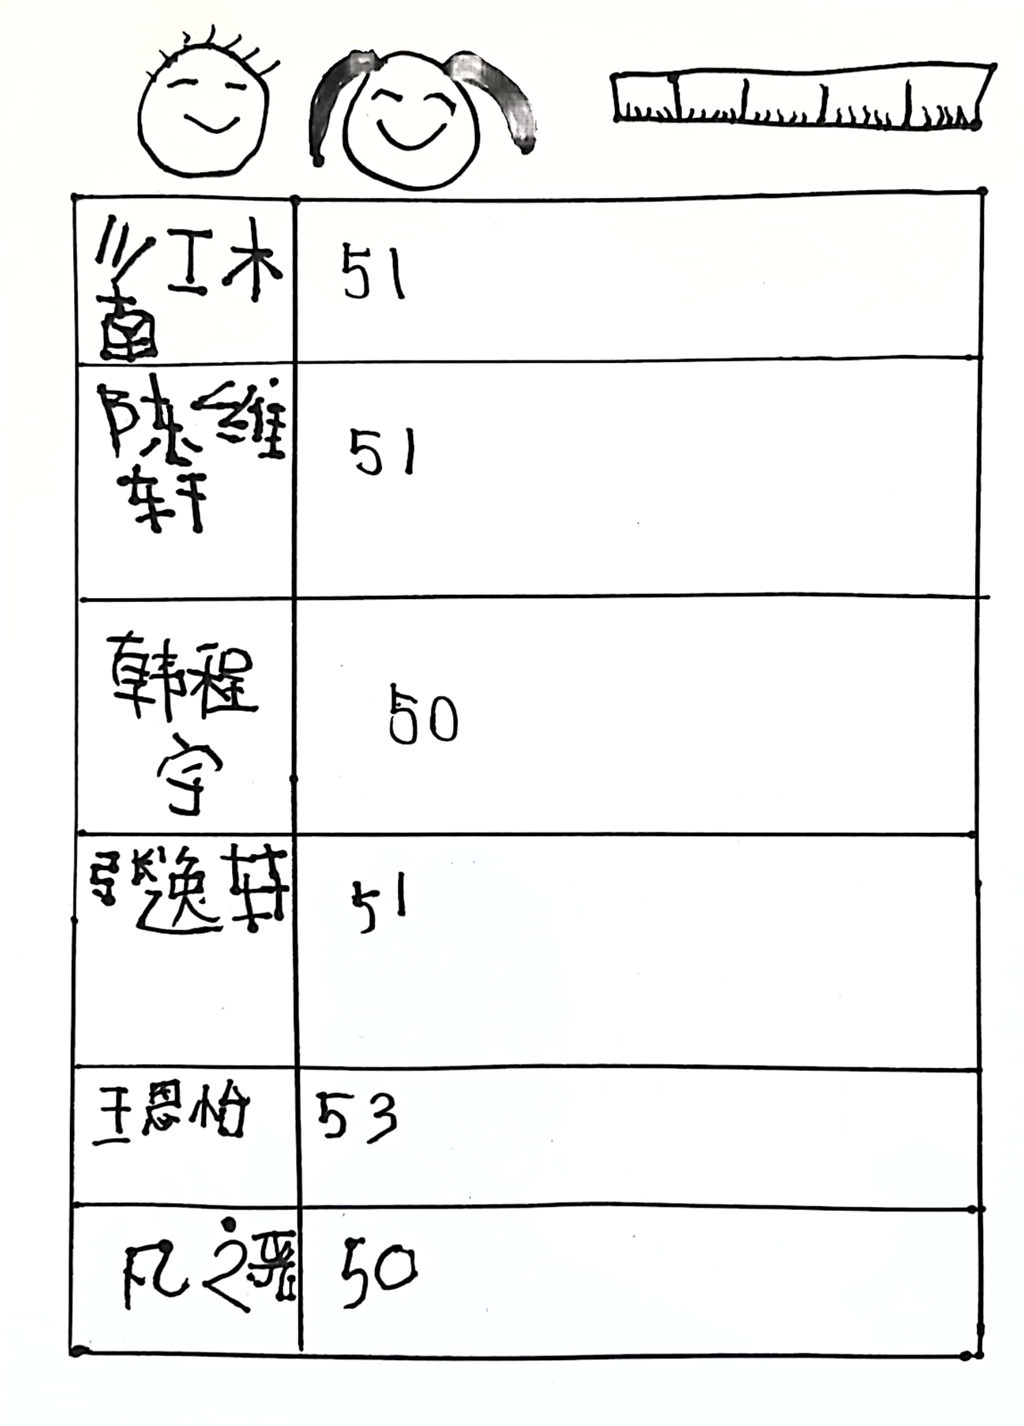 江木
51
陈维
轩
51
韩程
宇
50
张逸轩
51
王恩怡
53
凡之
50